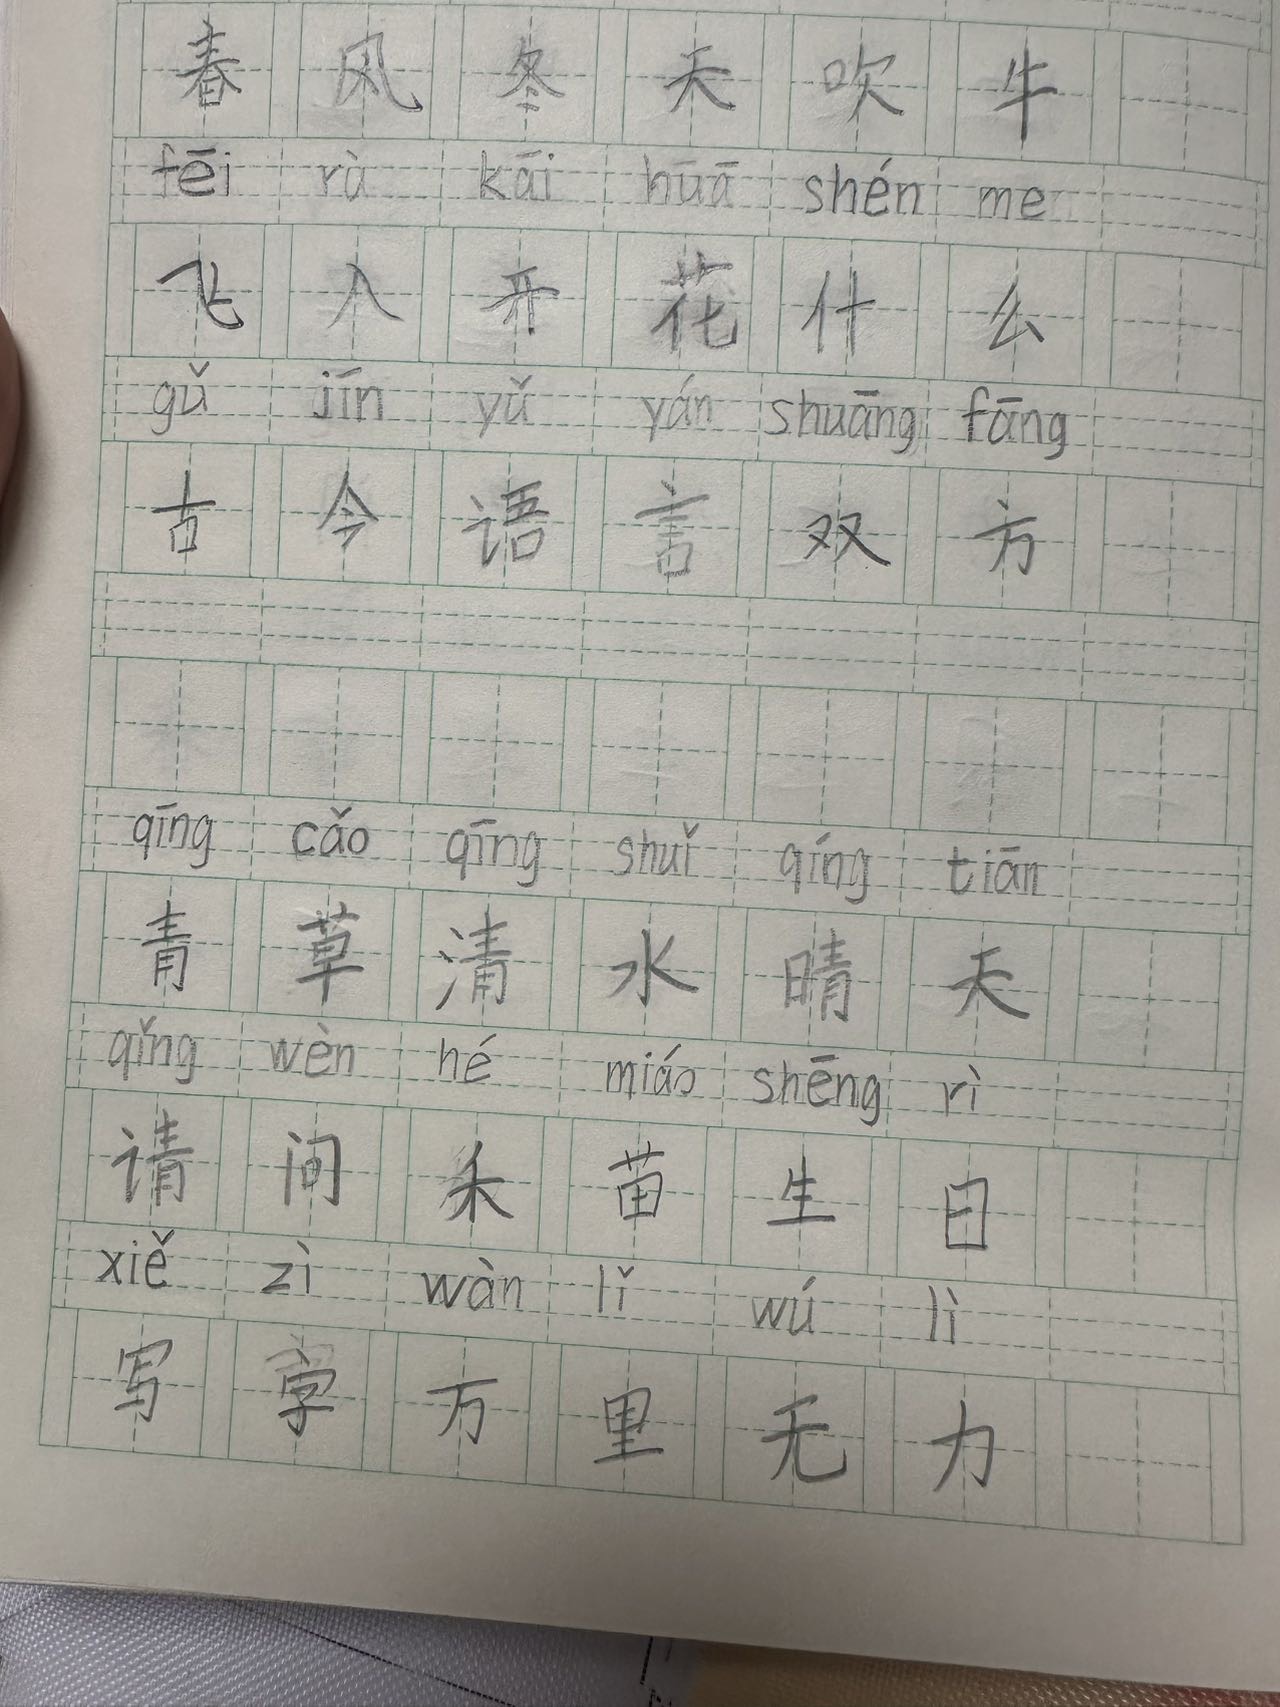 春 风 冬 天 吹 牛
fēi rù kāi huā shén me
飞 入 开 花 什 么
gǔ jīn yǔ yán shuāng fāng
古 今 语 言 双 方
qīng cǎo qīng shuǐ qíng tiān
青 草 清 水 晴 天
qǐng wèn hé miáo shēng rì
请 问 禾 苗 生 日
xiě zì wàn lǐ wú lì
写 字 万 里 无 力